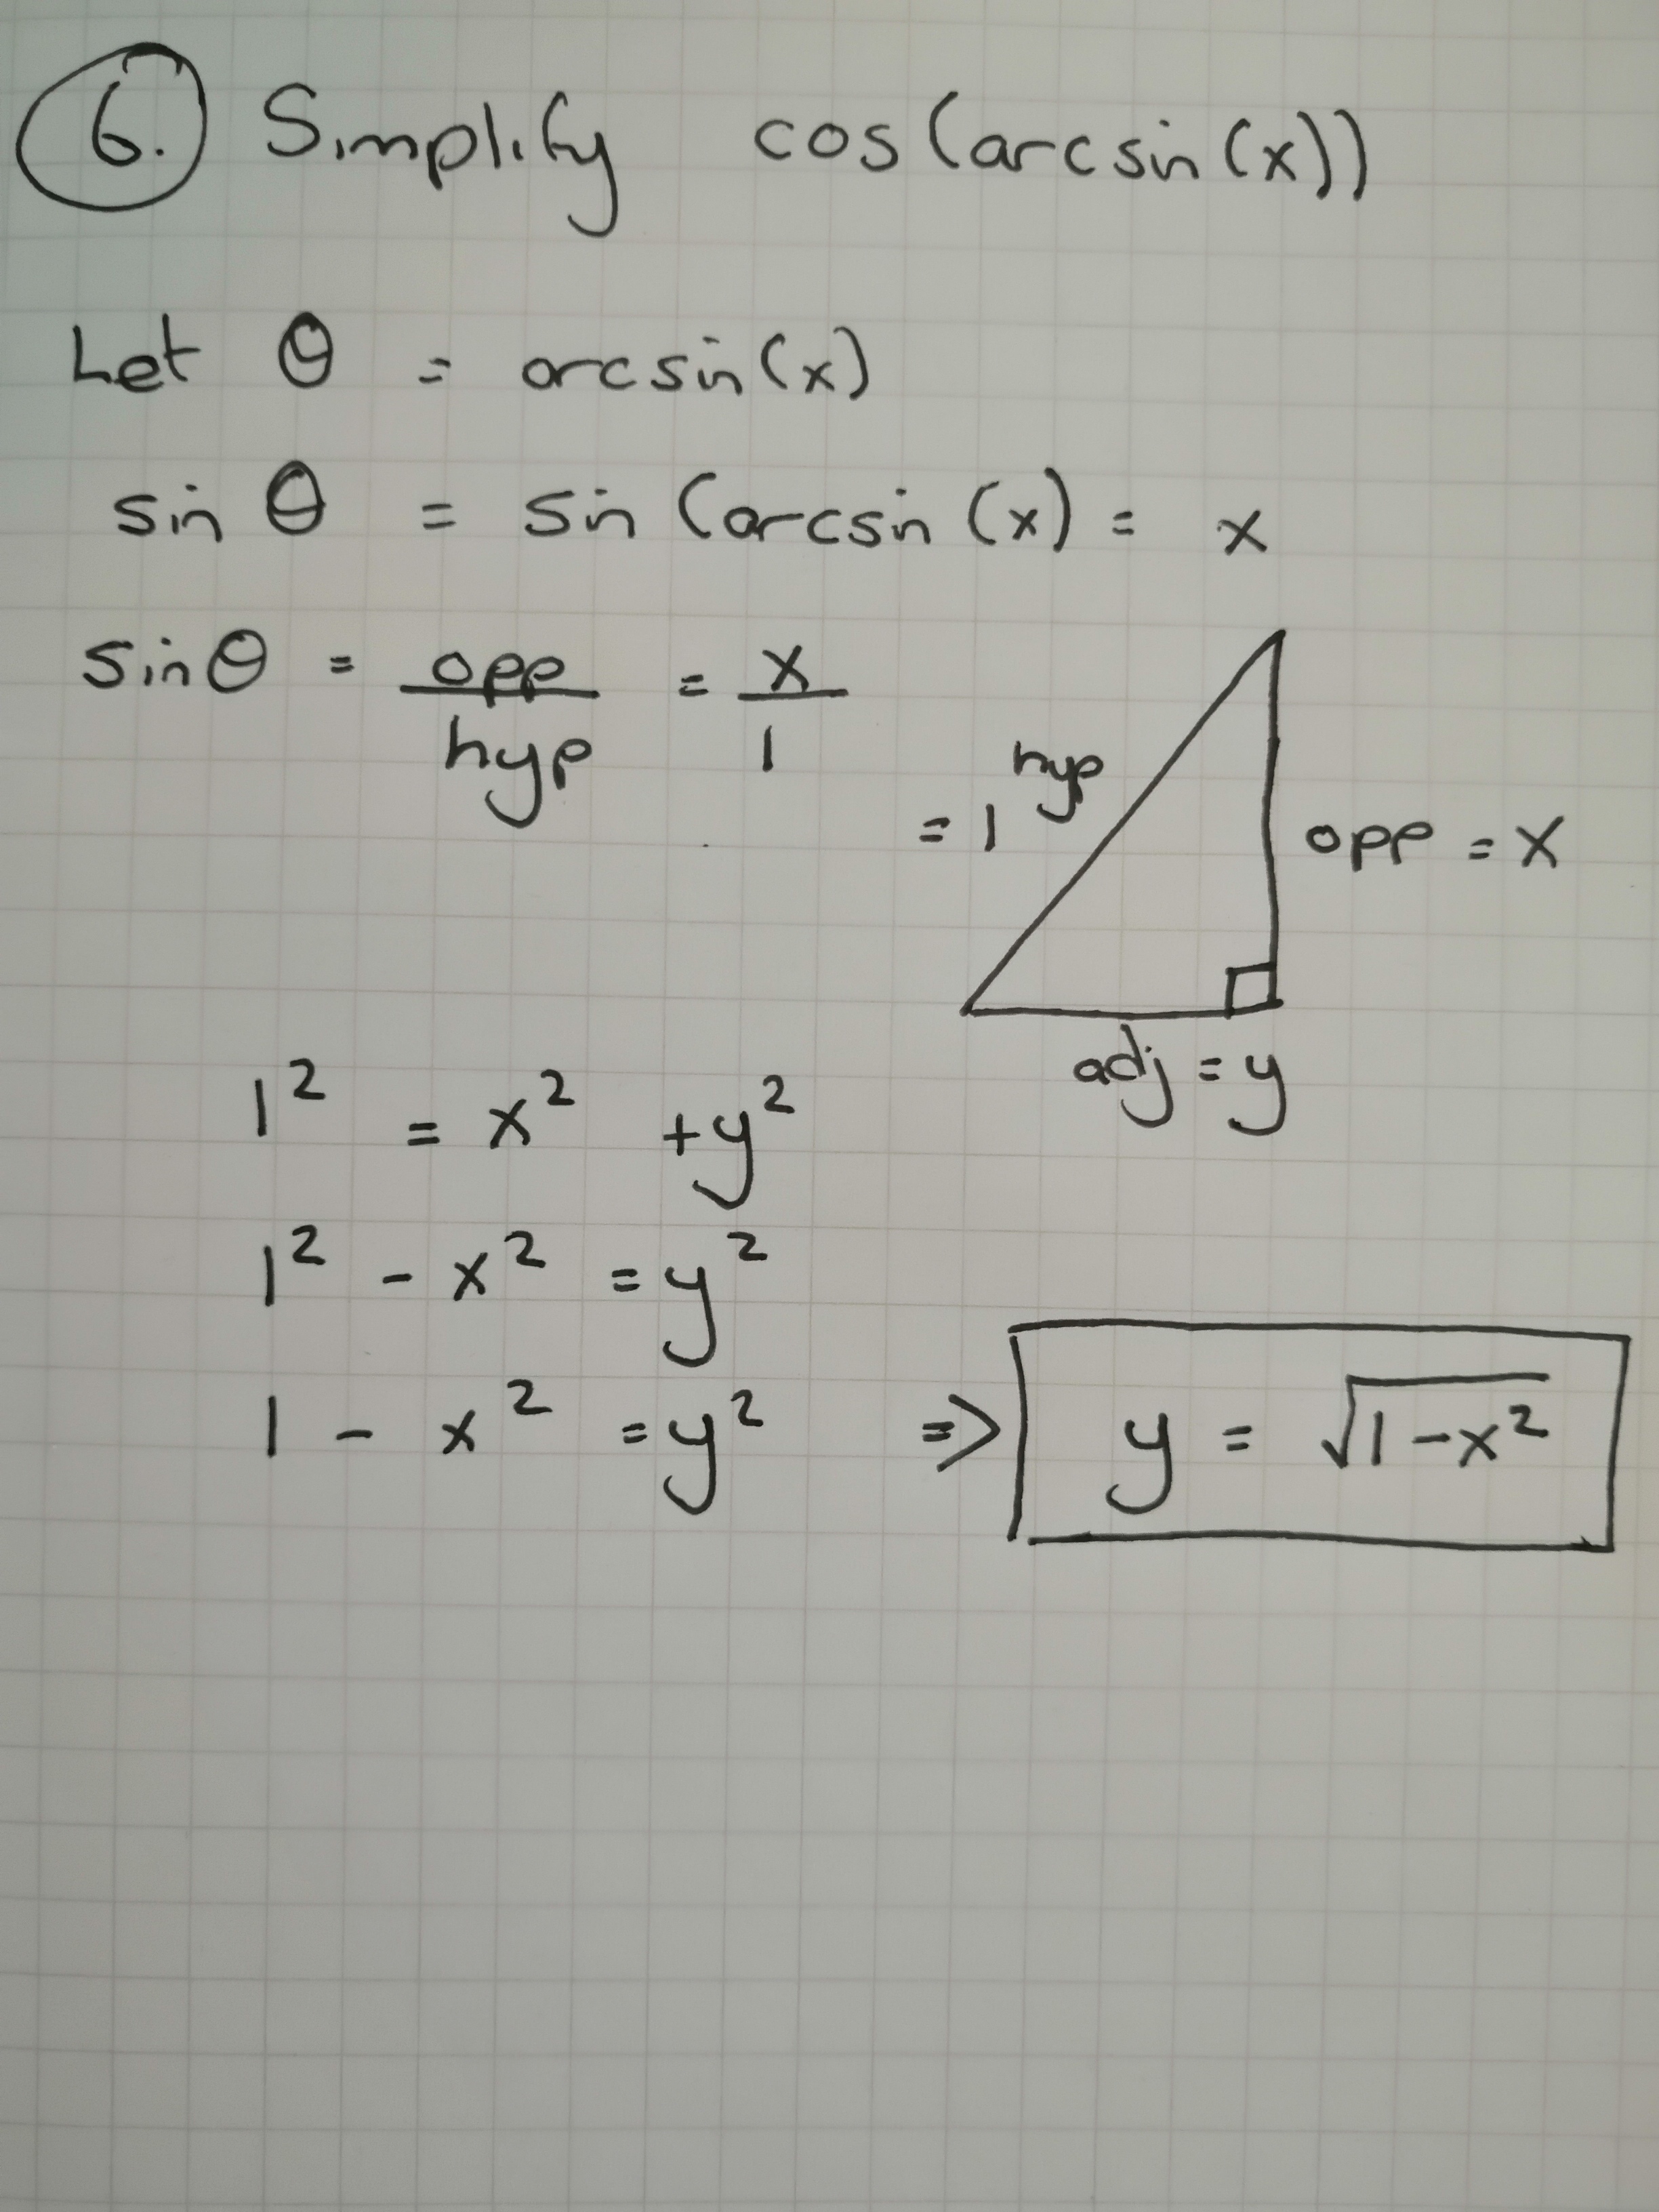 6. Simplify cos(arcsin(x))
Let θ = arcsin(x)
sin θ = sin (arcsin (x) = x
sinθ = opp/hyp = x/1
hyp
= 1
opp = x
adj = y
1² = x² + y²
1² - x² = y²
1 - x² = y² ⇒ y = √1-x²